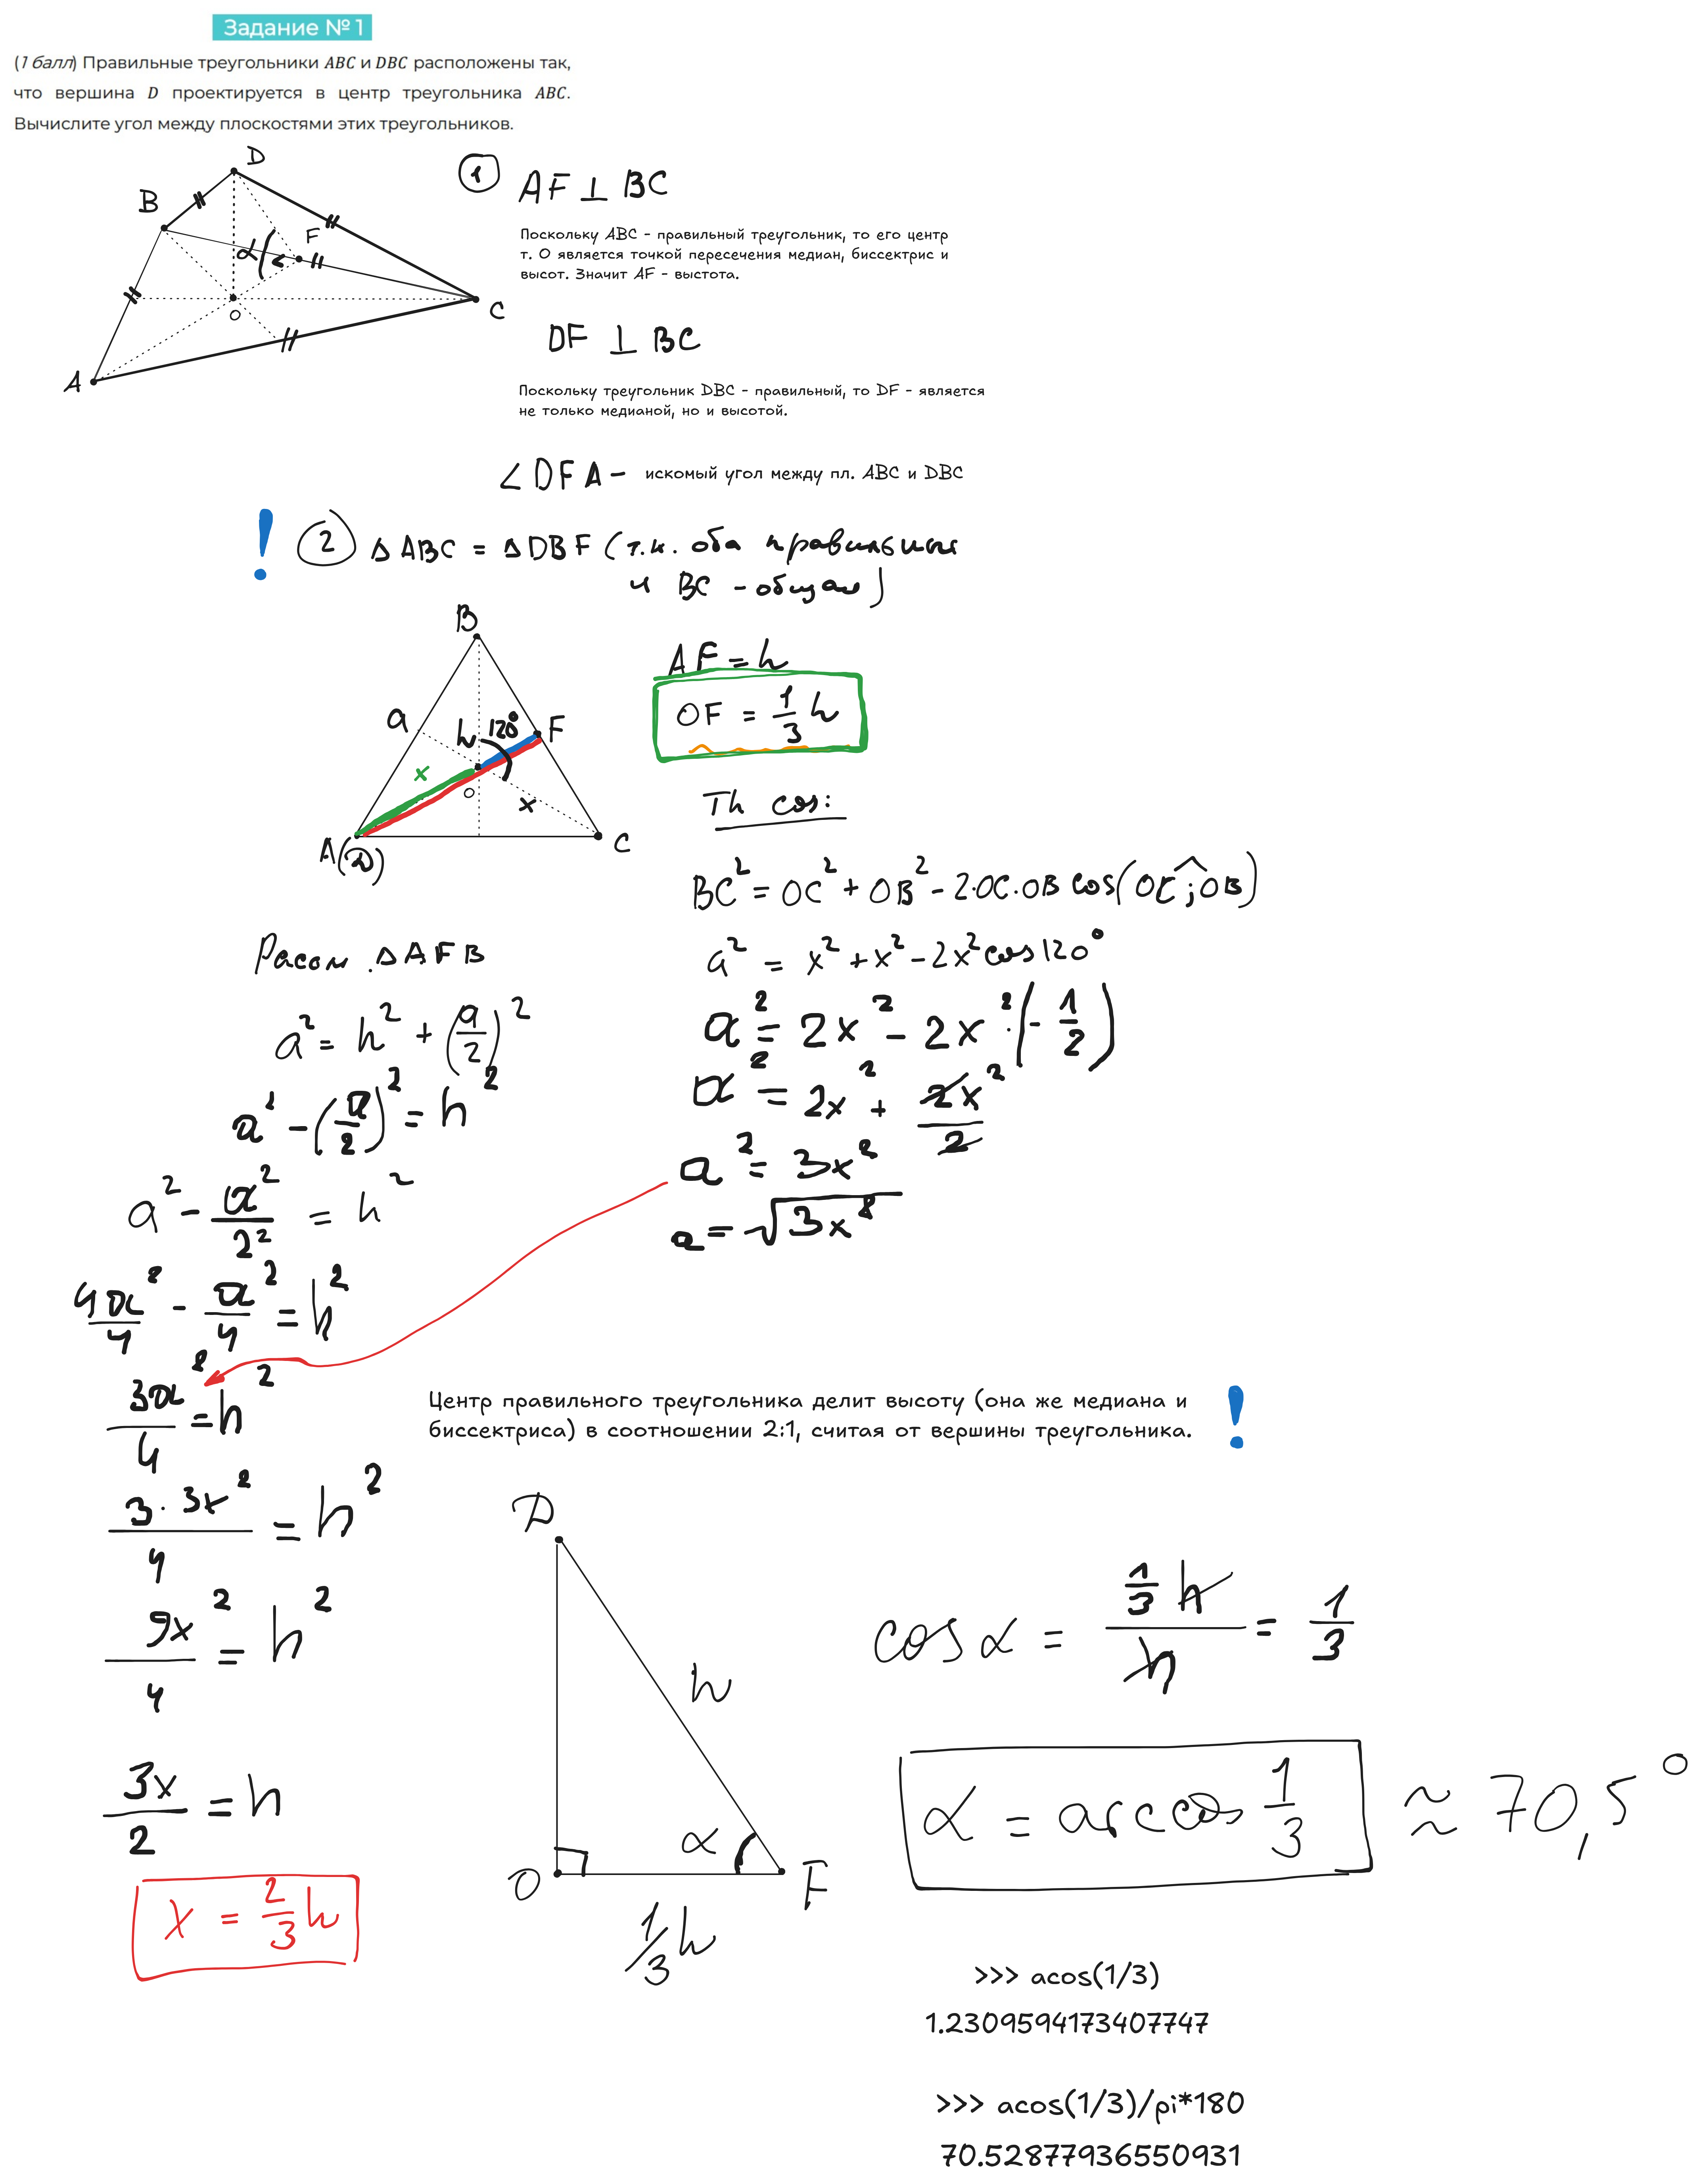 Задание № 1
(1 балл) Правильные треугольники ABC и DBC расположены так,
что вершина D проектируется в центр треугольника ABC.
Вычислите угол между плоскостями этих треугольников.
D
B
F
α
O
C
A
1
AF ⊥ BC
Поскольку ABC - правильный треугольник, то его центр
т. O является точкой пересечения медиан, биссектрис и
высот. Значит AF - выстота.
DF ⊥ BC
Поскольку треугольник DBC - правильный, то DF - является
не только медианой, но и высотой.
∠DFA - искомый угол между пл. ABC и DBC
! 2 Δ ABC = Δ DBF (т.к. оба правильные
и BC - общая)
B
a
h
120°
F
x
O
x
A(D)
C
AF = h
OF = 1/3 h
Th cos:
BC² = OC² + OB² - 2·OC·OB cos(OC ; OB)
a² = x² + x² - 2x² cos 120°
a² = 2x² - 2x² · (- 1/2)
a² = 2x² + 2x²/2
a² = 3x²
a = √3x²
Рассм. Δ AFB
a² = h² + (a/2)²
a² - (a/2)² = h²
a² - a²/2² = h²
4a²/4 - a²/4 = h²
3a²/4 = h²
3 · 3x²/4 = h²
9x²/4 = h²
3x/2 = h
x = 2/3 h
Центр правильного треугольника делит высоту (она же медиана и
биссектриса) в соотношении 2:1, считая от вершины треугольника.
!
D
h
α
O
F
1/3 h
cos α = 1/3 h / h = 1/3
α = arccos 1/3 ≈ 70,5°
>>> acos(1/3)
1.2309594173407747
>>> acos(1/3)/pi*180
70.52877936550931